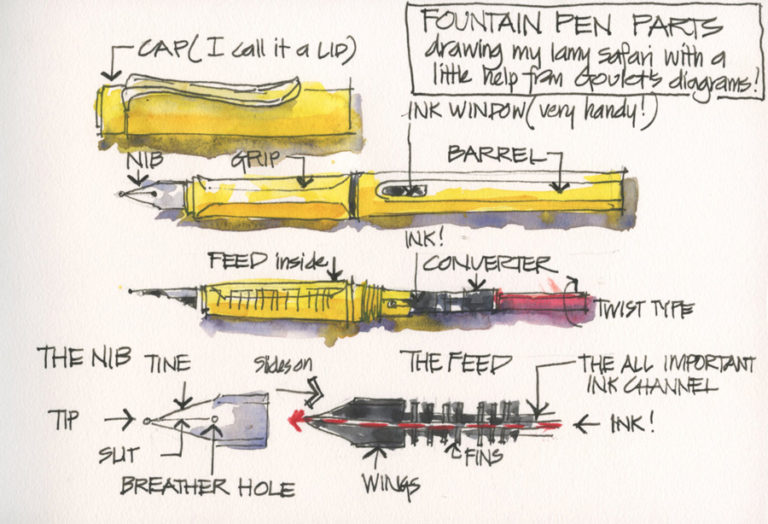 FOUNTAIN PEN PARTS
drawing my lamy safari with a
little help from Goulet's diagrams!
CAP (I call it a LID)
INK WINDOW (very handy!)
NIB
GRIP
BARREL
INK!
FEED inside
CONVERTER
TWIST TYPE
THE NIB
TINE
Slides on
THE FEED
THE ALL IMPORTANT
INK CHANNEL
TIP
INK!
SLIT
FINS
BREATHER HOLE
WINGS